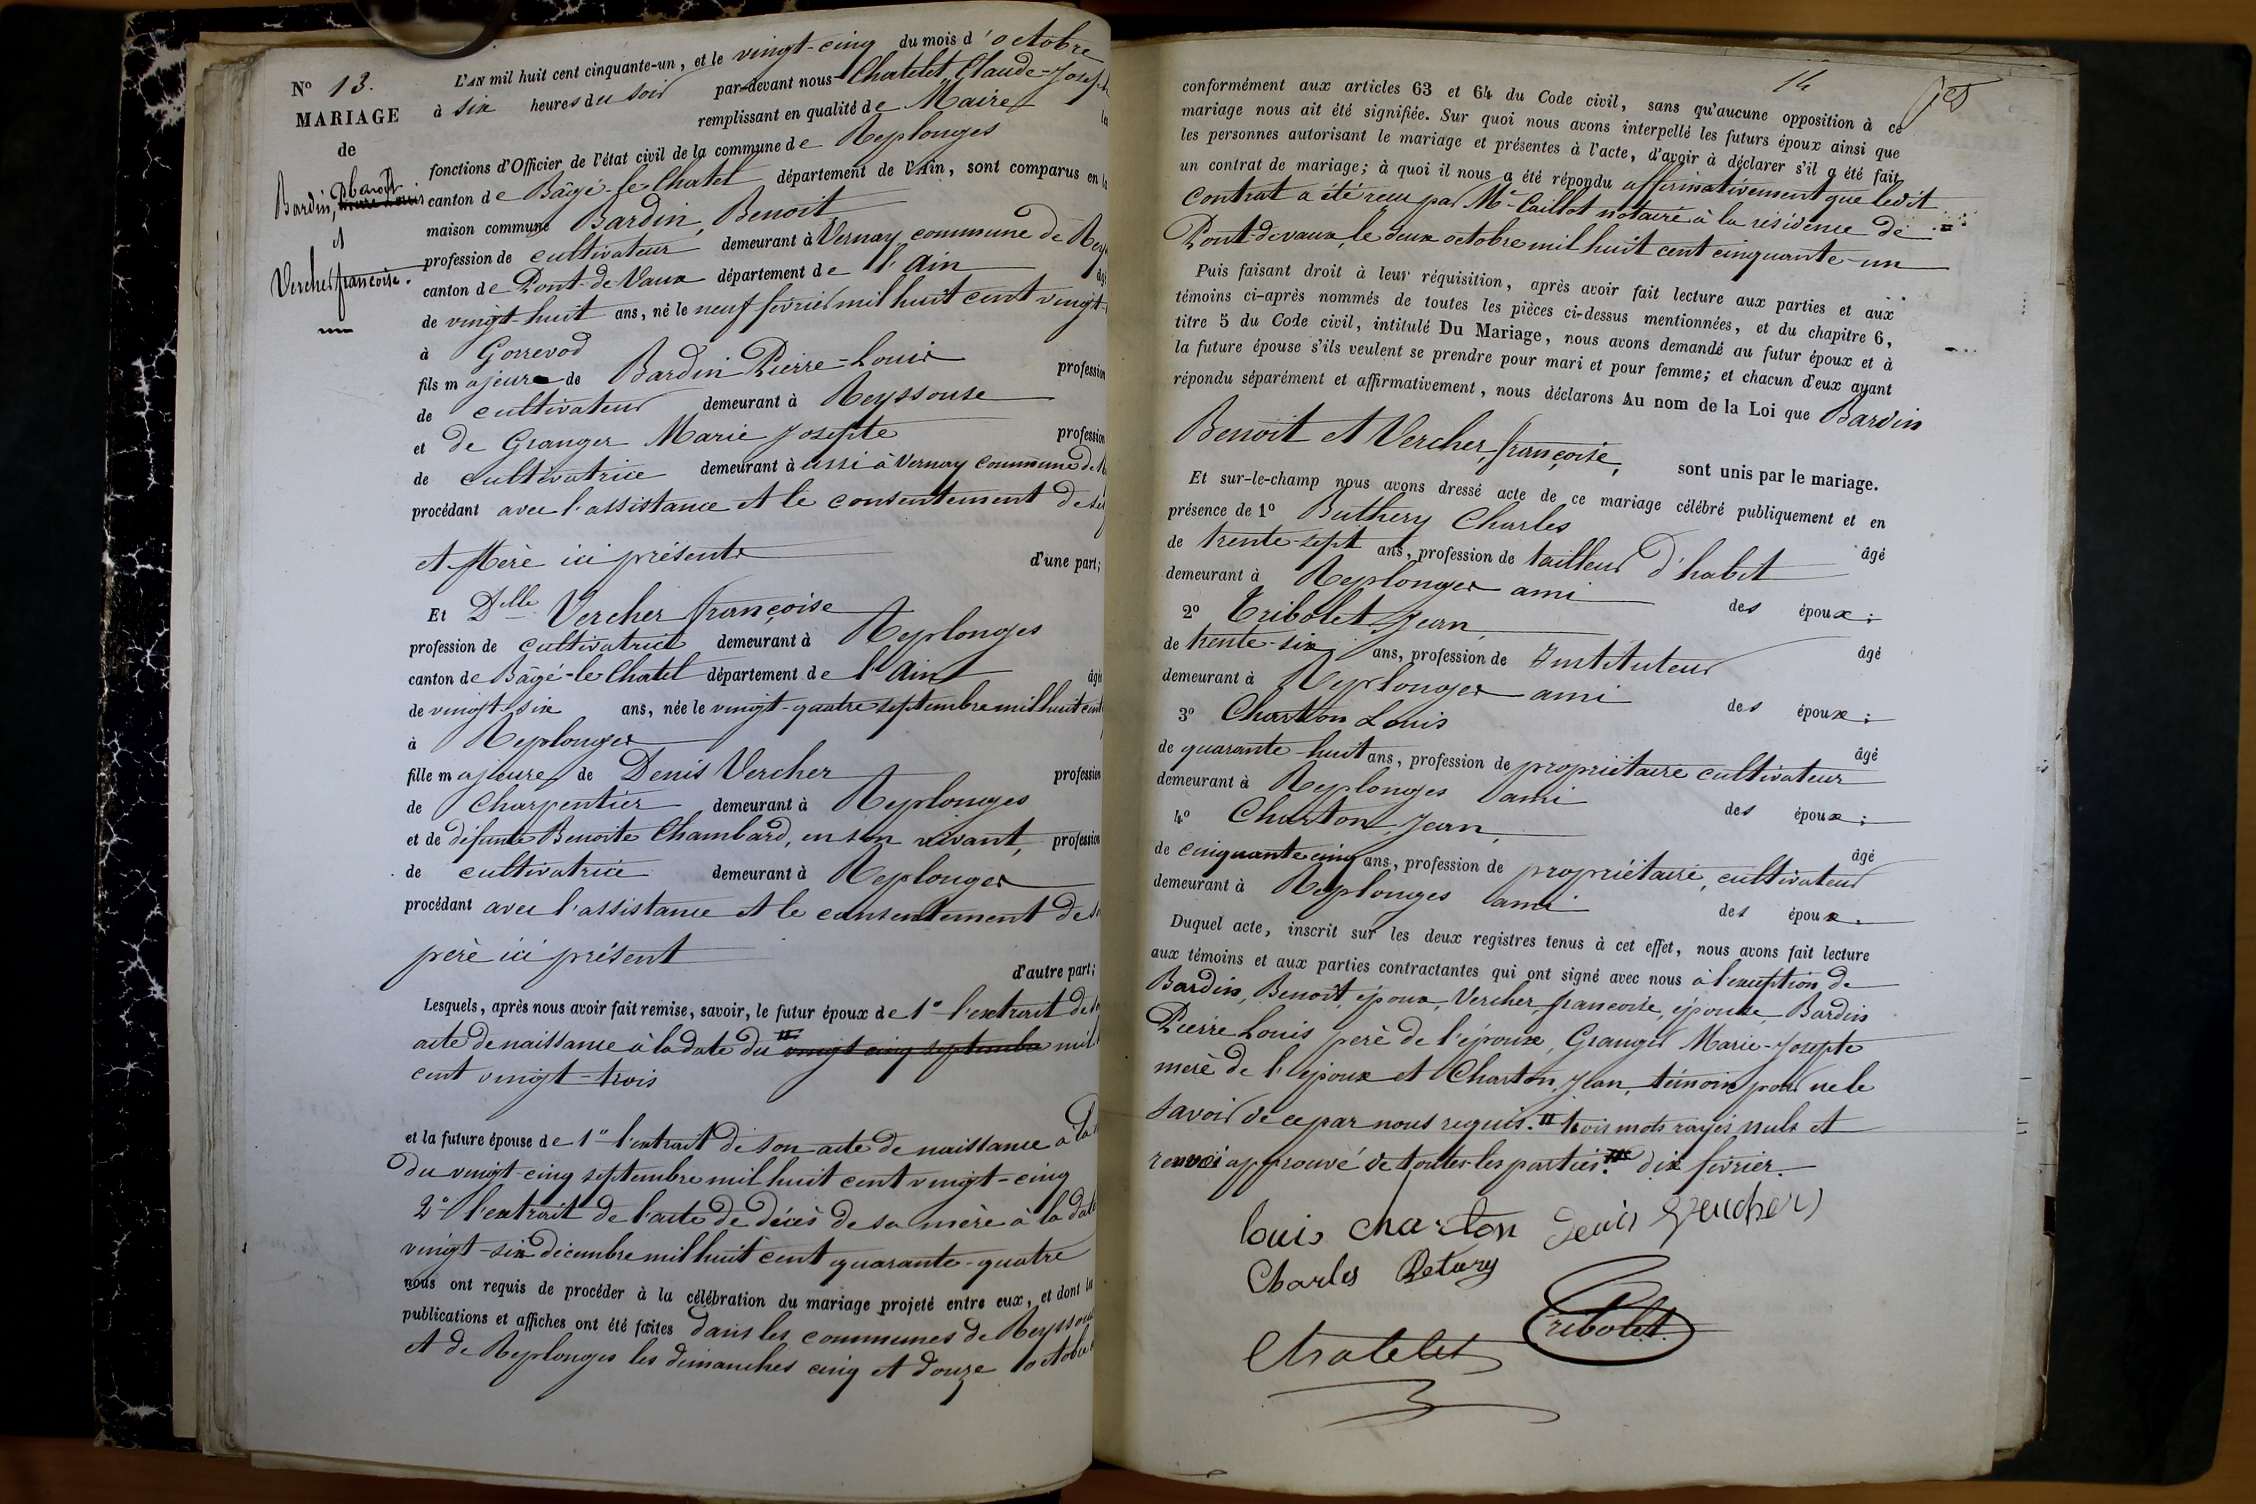 N° 13.
MARIAGE
de
Bardin, Benoit
et
Vercher françoise.
L'AN mil huit cent cinquante-un, et le vingt-cinq du mois d'octobre
à six heures du soir par-devant nous Chatelet Claude-Joseph
remplissant en qualité de Maire les
fonctions d'Officier de l'état civil de la commune de Replonges
canton de Bâgé-le-Chatel département de l'Ain, sont comparus en la
maison commune Bardin, Benoit
profession de cultivateur demeurant à Vernay commune de Rey
canton de Pont-de-Vaux département de l'Ain âgé
de vingt-huit ans, né le neuf février mil huit cent vingt-
à Gorrevod
fils majeur de Bardin Pierre-Louis profession
de cultivateur demeurant à Reyssouse
et de Granger Marie Josepte profession
de cultivatrice demeurant à ussi à Vernay commune de
procédant avec l'assistance et le consentement de ses
et Mère ici présents d'une part;
Et Delle Vercher françoise
profession de cultivatrice demeurant à Replonges
canton de Bâgé-le-Chatel département de l'Ain âgée
de vingt-six ans, née le vingt-quatre septembre mil huit cent
à Replonges
fille majeure de Denis Vercher profession
de Charpentier demeurant à Replonges
et de défunte Benoite Chambard, en son vivant, profession
de cultivatrice demeurant à Replonges
procédant avec l'assistance et le consentement de
père ici présent d'autre part;
Lesquels, après nous avoir fait remise, savoir, le futur époux de 1° l'extrait de
acte de naissance à la date du vingt cinq septembre mil
cent vingt-trois
et la future épouse de 1° l'extrait de son acte de naissance à la
du vingt-cinq septembre mil huit cent vingt-cinq
2° l'extrait de l'acte de décès de sa mère à la date
vingt-six décembre mil huit cent quarante-quatre
nous ont requis de procéder à la célébration du mariage projeté entre eux, et dont les
publications et affiches ont été faites dans les communes de Reyssouse
et de Replonges les dimanches cinq et douze octobre
14
conformément aux articles 63 et 64 du Code civil, sans qu'aucune opposition à ce
mariage nous ait été signifiée. Sur quoi nous avons interpellé les futurs époux ainsi que
les personnes autorisant le mariage et présentes à l'acte, d'avoir à déclarer s'il a été fait
un contrat de mariage; à quoi il nous a été répondu affirmativement que ledit
Contrat a été reçu par Me Caillot notaire à la résidence de
Pont-de-vaux, le deux octobre mil huit cent cinquante-un
Puis faisant droit à leur réquisition, après avoir fait lecture aux parties et aux
témoins ci-après nommés de toutes les pièces ci-dessus mentionnées, et du chapitre 6,
titre 5 du Code civil, intitulé Du Mariage, nous avons demandé au futur époux et à
la future épouse s'ils veulent se prendre pour mari et pour femme; et chacun d'eux ayant
répondu séparément et affirmativement, nous déclarons Au nom de la Loi que Bardin
Benoit et Vercher, françoise, sont unis par le mariage.
Et sur-le-champ nous avons dressé acte de ce mariage célébré publiquement et en
présence de 1° Buthery Charles âgé
de trente-sept ans, profession de tailleur d'habit
demeurant à Replonges ami des époux;
2° Tribolet Jean âgé
de trente-six ans, profession de Instituteur
demeurant à Replonges ami des époux;
3° Charton Louis âgé
de quarante-huit ans, profession de propriétaire cultivateur
demeurant à Replonges ami des époux;
4° Charton, Jean, âgé
de cinquante cinq ans, profession de propriétaire, cultivateur
demeurant à Replonges ami des époux.
Duquel acte, inscrit sur les deux registres tenus à cet effet, nous avons fait lecture
aux témoins et aux parties contractantes qui ont signé avec nous à l'exception de
Bardin, Benoit, époux, Vercher, françoise, épouse, Bardin
Pierre Louis père de l'époux, Granger Marie-Josepte
mère de l'époux et Charton, Jean, témoin pour ne le
savoir de ce par nous requis. trois mots rayés nuls et
renvoi approuvé de toutes les parties. dix février.
louis charton denis Vercher
Charles Betury
Tribolet
Chatelet